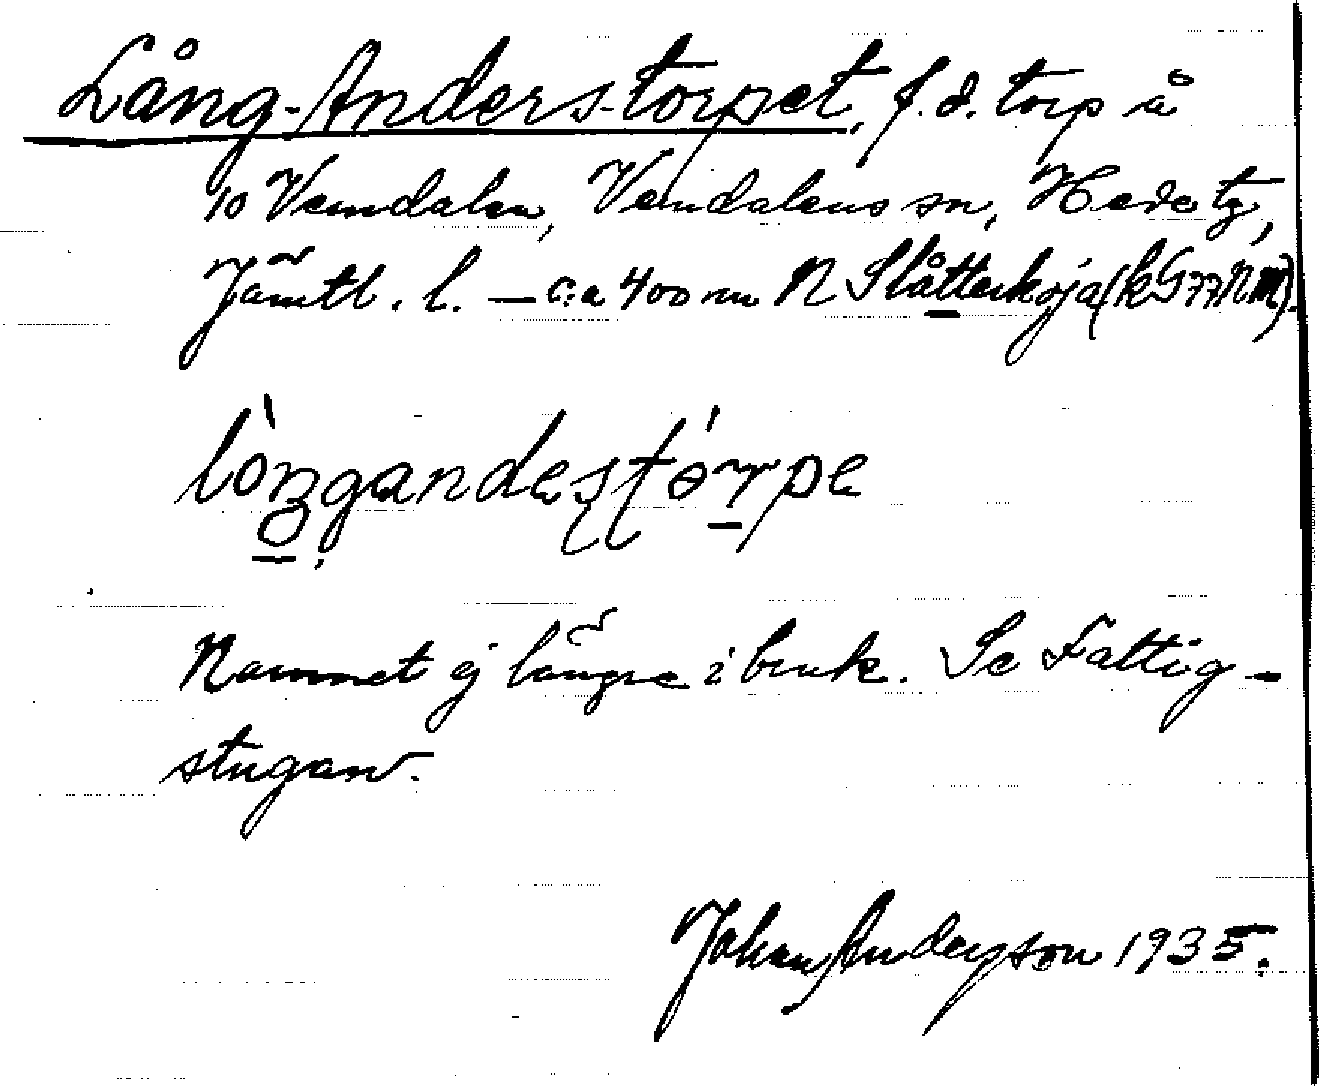 Lång-Anders-torpet, f.d. torp å
10 Vemdalen, Vemdalens sn, Hede tg,
Jämtl. l. — ca 400 m N Slåtterkoja
lòngandestórpe
Namnet ej längre i bruk. Se Fattig-
stugan.
Johan Anderson 1935.